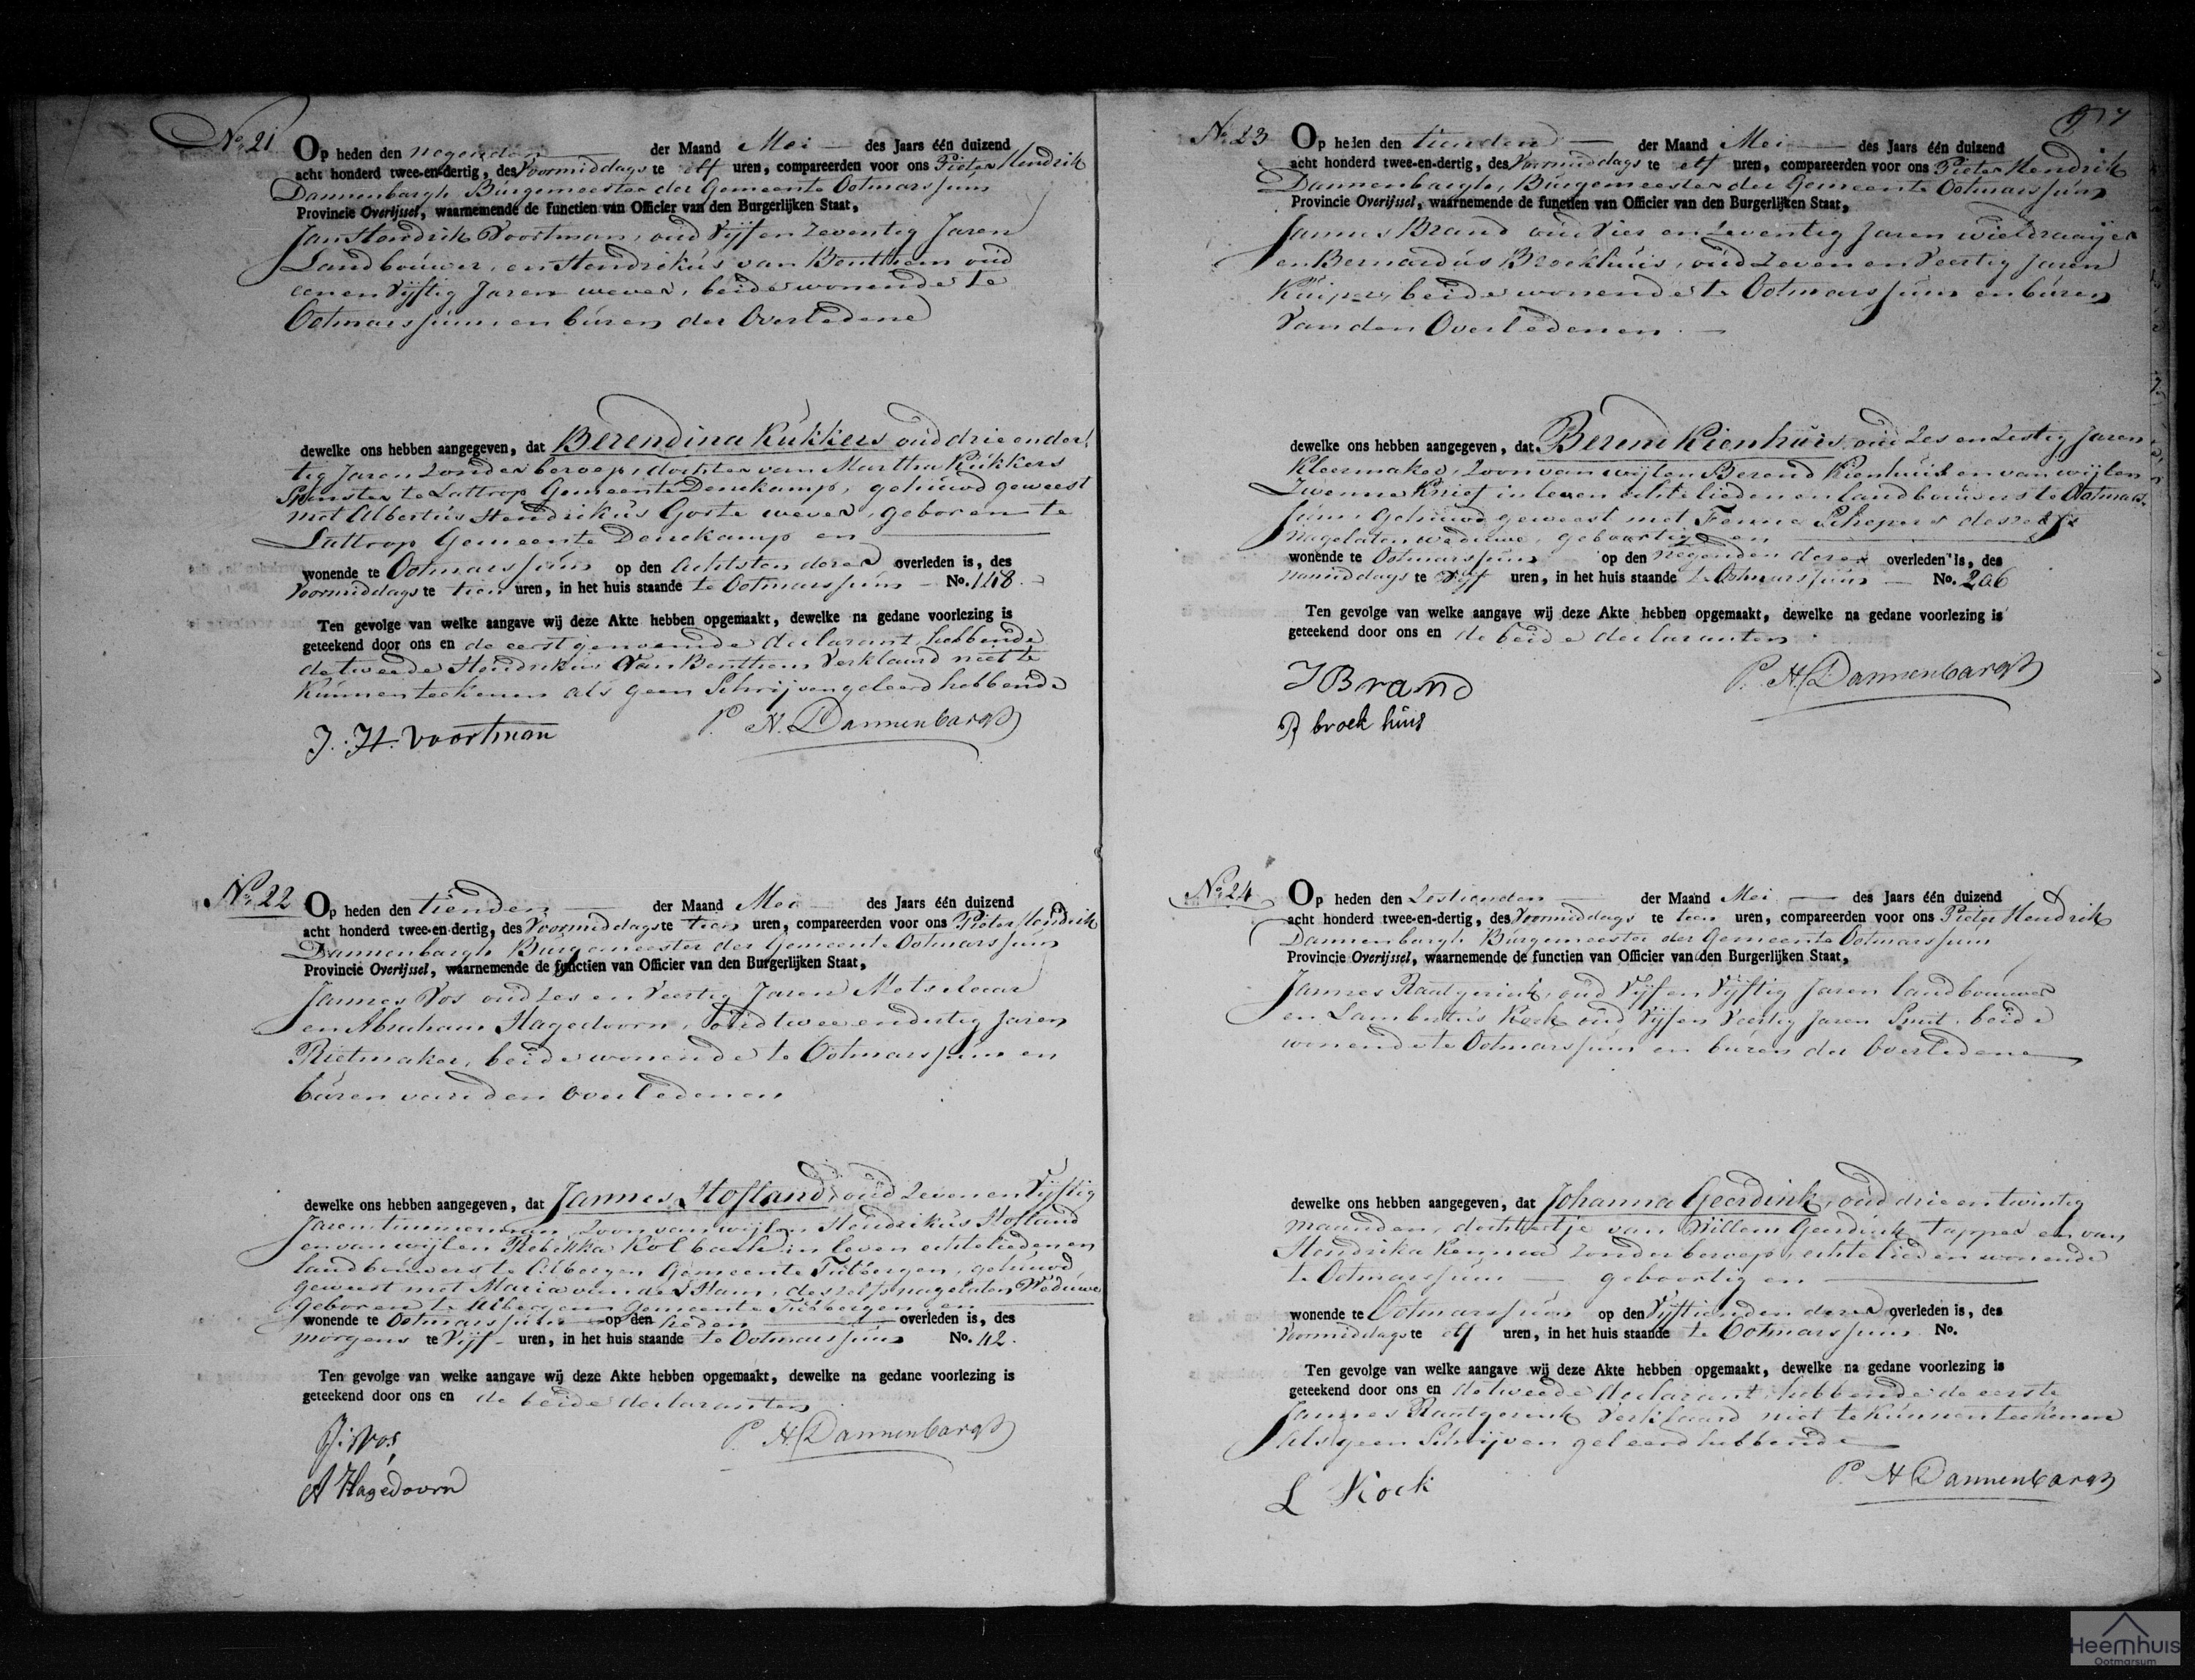 No 21
Op heden den negenden der Maand Mei des Jaars één duizend
acht honderd twee-en-dertig, des Voormiddags te elf uren, compareerden voor ons Pieter Hendrik
Dannenbargh Burgemeester der Gemeente Ootmarssum
Provincie Overijssel, waarnemende de functien van Officier van den Burgerlijken Staat,
Jan Hendrik Voortman, oud Vijf en Zeventig Jaren
Landbouwer, en Hendrikus van Benthem oud
een en Vijftig Jaren wever, beide wonende te
Ootmarssum, en buren der Overledene
dewelke ons hebben aangegeven, dat Berendina Kukkers oud drie en der
tig Jaren zonder beroep, dochter van Martha Kukkers
Spinster te Lattrop Gemeente Denekamp, gehuwd geweest
met Albertus Hendrikus Gorte wever, geboren te
Lattrop Gemeente Denekamp en
wonende te Ootmarssum op den Achtsten dezer overleden is, des
Voormiddags te tien uren, in het huis staande te Ootmarssum No. 148.
Ten gevolge van welke aangave wij deze Akte hebben opgemaakt, dewelke na gedane voorlezing is
geteekend door ons en de eerstgenoemde declarant, hebbende
de tweede Hendrikus van Benthem Verklaard niet te
Kunnen teekenen als geen Schrijven geleerd hebbende
J. H. Voortman P. H. Dannenbargh
No 22
Op heden den tienden der Maand Mei des Jaars één duizend
acht honderd twee-en-dertig, des Voormiddags te tien uren, compareerden voor ons Pieter Hendrik
Dannenbargh Burgemeester der Gemeente Ootmarssum
Provincie Overijssel, waarnemende de functien van Officier van den Burgerlijken Staat,
Jannes Vos oud Zes en Veertig Jaren Metselaar
en Abraham Hagedoorn, oud twee en dertig Jaren
Rietmaker, beide wonende te Ootmarssum en
buren van den Overledenen
dewelke ons hebben aangegeven, dat Jannes Hofland, oud Zeven en Vijftig
Jaren timmerman, Zoon van wijlen Hendrikus Hofland
en van wijlen Rebekka Kolbach in leven echtelieden en
landbouwers te Albergen Gemeente Tubbergen, gehuwd
geweest met Maria van der Ham, deszelfs nagelaten Weduwe
geboren te Albergen Gemeente Tubbergen en
wonende te Ootmarssum op den heden overleden is, des
morgens te Vijf uren, in het huis staande te Ootmarssum No. 42.
Ten gevolge van welke aangave wij deze Akte hebben opgemaakt, dewelke na gedane voorlezing is
geteekend door ons en de beide declaranten
J. Vos P. H. Dannenbargh
A Hagedoorn
97
No 23
Op heden den tienden der Maand Mei des Jaars één duizend
acht honderd twee-en-dertig, des Voormiddags te elf uren, compareerden voor ons Pieter Hendrik
Dannenbargh, Burgemeester der Gemeente Ootmarssum
Provincie Overijssel, waarnemende de functien van Officier van den Burgerlijken Staat,
Jannes Brand oud Vier en Zeventig Jaren wieldraayer
en Bernardus Broekhuis, oud Zeven en Veertig Jaren
Kuiper, beide wonende te Ootmarssum en buren
Van den Overledenen.
dewelke ons hebben aangegeven, dat Berend Kienhuis, oud Zes en Zestig Jaren
Kleermaker, Zoon van wijlen Berend Kienhuis en van wijlen
Zwenne Knief in leven echtelieden en landbouwers te Ootmars
sum, Gehuwd geweest met Fenne Schepers deszelfs
nagelaten weduwe, geboortig en
wonende te Ootmarssum op den negenden dezer overleden is, des
namiddags te vijf uren, in het huis staande te Ootmarssum No. 206
Ten gevolge van welke aangave wij deze Akte hebben opgemaakt, dewelke na gedane voorlezing is
geteekend door ons en de beide declaranten.
J Brand P. H. Dannenbargh
B broek huis
No 24
Op heden den Zestienden der Maand Mei des Jaars één duizend
acht honderd twee-en-dertig, des Voormiddags te tien uren, compareerden voor ons Pieter Hendrik
Dannenbargh Burgemeester der Gemeente Ootmarssum
Provincie Overijssel, waarnemende de functien van Officier van den Burgerlijken Staat,
Jannes Raatgerink, oud Vijf en Vijftig Jaren landbouwer
en Lambertus Kock oud Vijf en Veertig Jaren Smit, beide
wonende te Ootmarssum en buren der Overledene
dewelke ons hebben aangegeven, dat Johanna Geerdink, oud drie en twintig
maanden, dochtertje van Willem Geerdink tapper en van
Hendrika zonder beroep, echtelieden wonende
te Ootmarssum geboortig en
wonende te Ootmarssum op den Vijftienden dezer overleden is, des
Voormiddags te elf uren, in het huis staande te Ootmarssum No.
Ten gevolge van welke aangave wij deze Akte hebben opgemaakt, dewelke na gedane voorlezing is
geteekend door ons en de tweede declarant, hebbende de eerste
Jannes Raatgerink Verklaard niet te Kunnen teekenen
als geen Schrijven geleerd hebbende
L Kock P. H Dannenbargh
Heemhuis
Ootmarsum